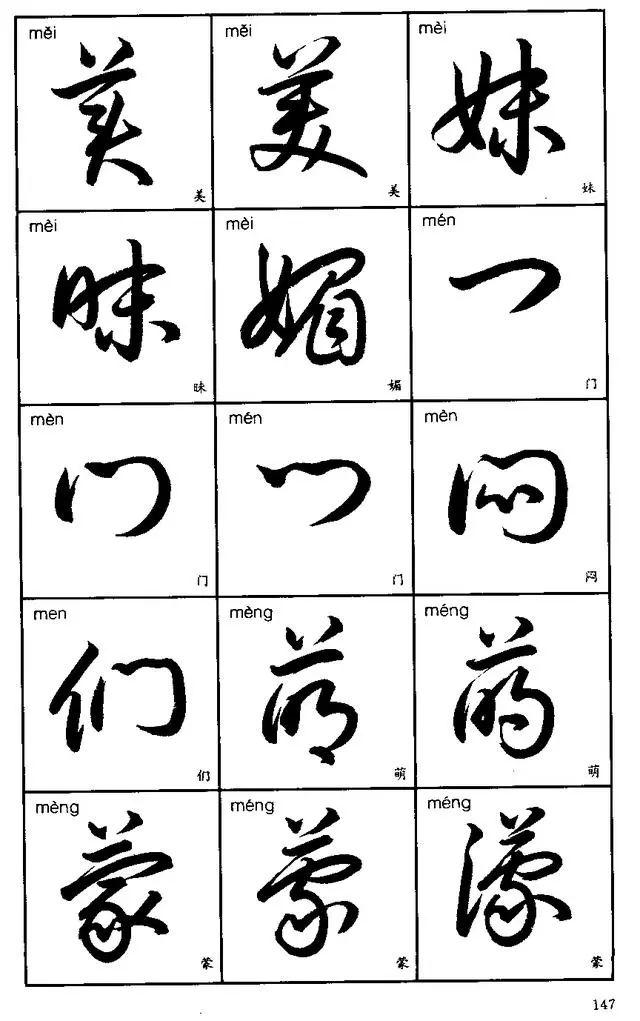 měi
美
美
měi
美
美
mèi
妹
妹
mèi
昧
昧
mèi
媚
媚
mén
门
门
mèn
门
门
mén
门
门
mèn
闷
闷
men
们
们
mèng
萌
萌
méng
萌
萌
mèng
蒙
蒙
méng
蒙
蒙
méng
濛
蒙
147